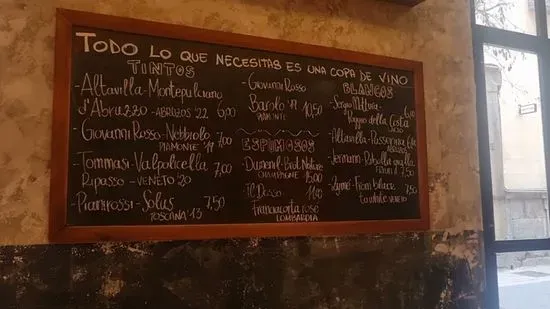 TODO LO QUE NECESITAS ES UNA COPA DE VINO
TINTOS
-Altavilla-Montepulciano
d'Abruzzo-ABRUZOS '22 6,00
-Giovanni Rosso-Nebbiolo
PIAMONTE '19 7,00
-Tommasi-Valpolicella
Ripasso-VENETO '20 7,00
-Pianirossi-Solus
TOSCANA '13 7,50
-Giovanni Rosso
Barolo '17 10,50
PIAMONTE
ESPUMOSOS
-Dumenil-Brut Nature
CHAMPAGNE 15,00
-Il Dosso
Franciacorta rosé
LOMBARDIA
BLANCOS
-Sergio Mottura-
Poggio della Costa
LACIO
-Altavilla-Passerina
-Jermann-Ribolla gialla
7,50
From black
to white VENETO 7,50